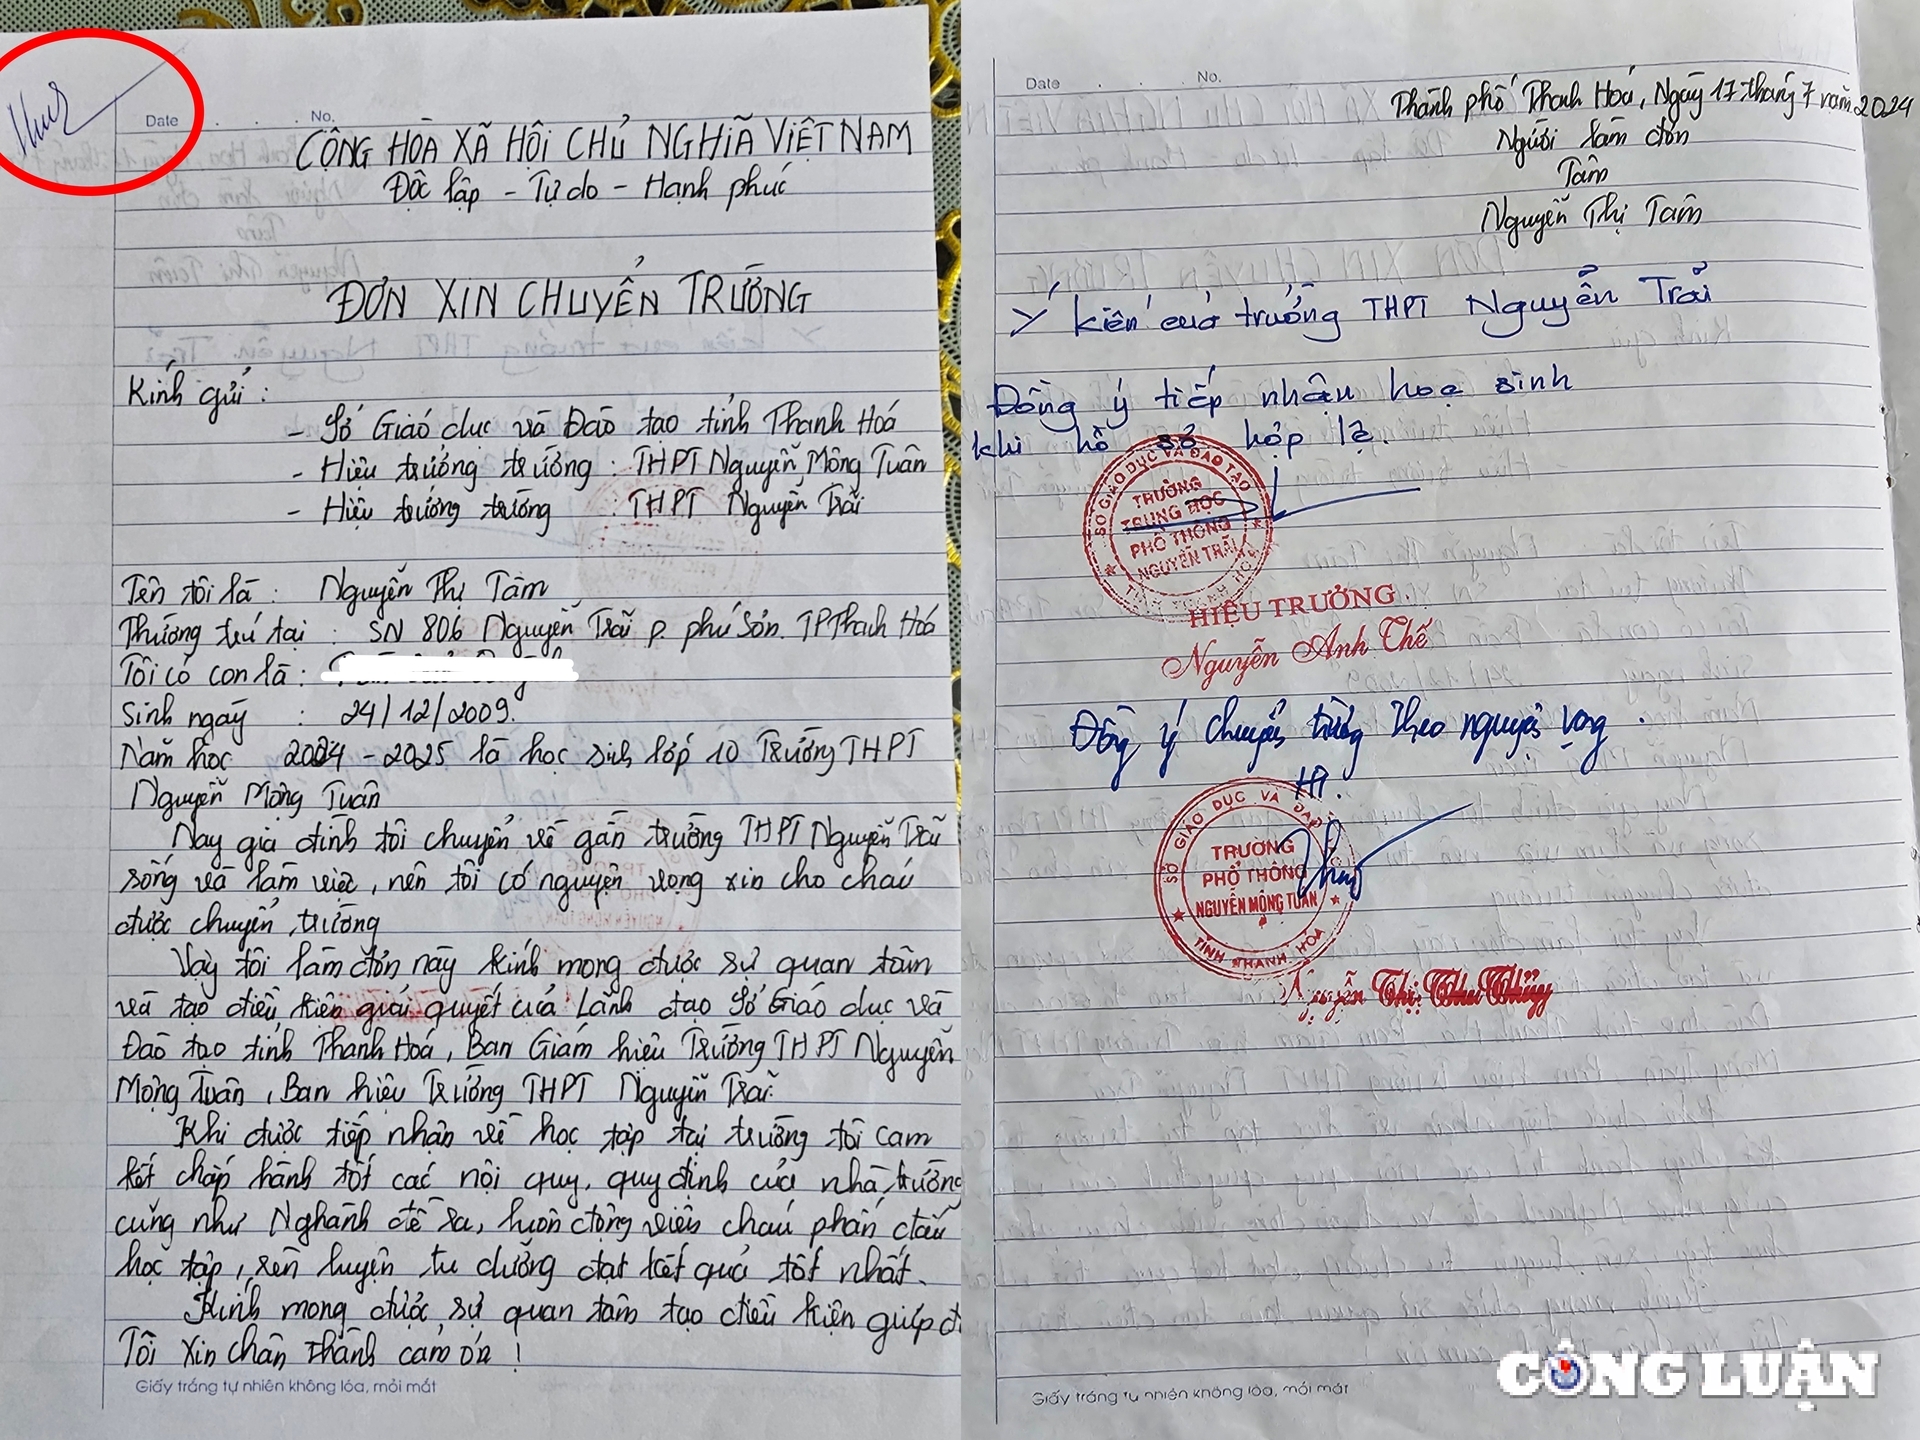 Date . . . No.
CỘNG HÒA XÃ HỘI CHỦ NGHĨA VIỆT NAM
Độc lập - Tự do - Hạnh phúc
ĐƠN XIN CHUYỂN TRƯỜNG
Kính gửi :
- Sở Giáo dục và Đào tạo tỉnh Thanh Hoá
- Hiệu trưởng trường : THPT Nguyễn Mộng Tuân
- Hiệu trưởng trường : THPT Nguyễn Trãi
Tên tôi là : Nguyễn Thị Tâm
Thường trú tại : SN 806 Nguyễn Trãi p. phú Sơn. TP Thanh Hoá
Tôi có con là :
Sinh ngày : 24/12/2009.
Năm học 2024 - 2025 là học sinh lớp 10 Trường THPT
Nguyễn Mộng Tuân
Nay gia đình tôi chuyển về gần trường THPT Nguyễn Trãi
sống và làm việc, nên tôi có nguyện vọng xin cho cháu
được chuyển trường
Vậy tôi làm đơn này kính mong được sự quan tâm
và tạo điều kiện giải quyết của Lãnh đạo Sở Giáo dục và
Đào tạo tỉnh Thanh Hoá, Ban Giám hiệu Trường THPT Nguyễn
Mộng Tuân, Ban hiệu Trường THPT Nguyễn Trãi.
Khi được tiếp nhận về học tập tại trường tôi cam
kết chấp hành tốt các nội quy, quy định của nhà trường
cũng như Nghành đề ra, luôn động viên cháu phấn đấu
học tập, rèn luyện tu dưỡng đạt kết quả tốt nhất.
Kính mong được sự quan tâm tạo điều kiện giúp đ
Tôi xin chân thành cảm ơn !
Giấy trắng tự nhiên không lóa, mỏi mắt
Date . . . No.
Thành phố Thanh Hoá, Ngày 17 tháng 7 năm 2024
Người làm đơn
Tâm
Nguyễn Thị Tâm
Ý kiến của trường THPT Nguyễn Trãi
Đồng ý tiếp nhận học sinh
khi hồ sơ hợp lệ.
SỞ GIÁO DỤC VÀ ĐÀO TẠO
TRƯỜNG
TRUNG HỌC
PHỔ THÔNG
NGUYỄN TRÃI
TỈNH THANH HOÁ
HIỆU TRƯỞNG
Nguyễn Anh Thế
Đồng ý chuyển trường theo nguyện vọng.
HT.
SỞ GIÁO DỤC VÀ ĐÀO TẠO
TRƯỜNG
PHỔ THÔNG
NGUYỄN MỘNG TUÂN
TỈNH THANH HOÁ
Nguyễn Thị Thu Thủy
Giấy trắng tự nhiên không lóa, mỏi mắt
CÔNG LUẬN